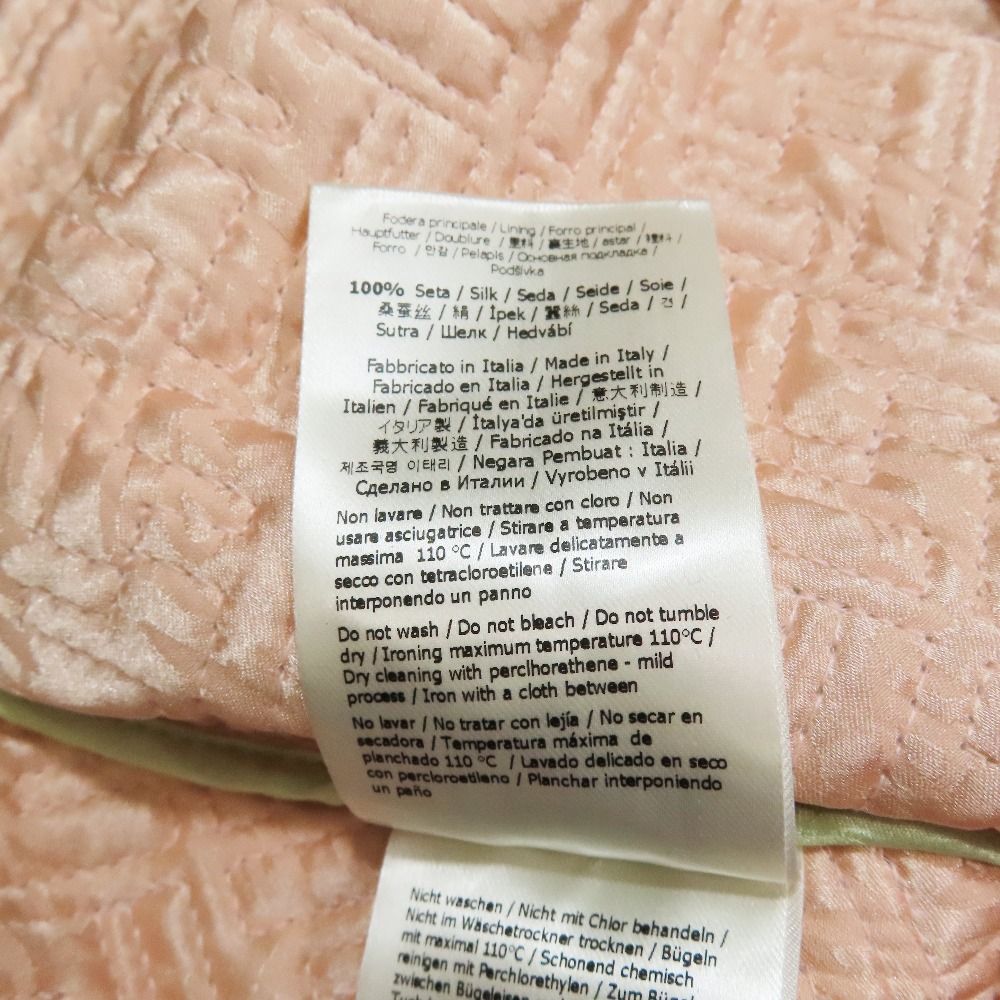 Fodera principale / Lining / Forro principal /
Hauptfutter / Doublure / 里料 / 裏生地 / astar / 裡料 /
Forro / 안감 / Pelapis / Основная подкладка /
Podšívka
100% Seta / Silk / Seda / Seide / Soie /
桑蚕丝 / 絹 / İpek / 蠶絲 / Seda / 견 /
Sutra / Шелк / Hedvábí
Fabbricato in Italia / Made in Italy /
Fabricado en Italia / Hergestellt in
Italien / Fabriqué en Italie / 意大利制造 /
イタリア製 / İtalya'da üretilmiştir /
義大利製造 / Fabricado na Itália /
제조국명 이태리 / Negara Pembuat : Italia /
Сделано в Италии / Vyrobeno v Itálii
Non lavare / Non trattare con cloro / Non
usare asciugatrice / Stirare a temperatura
massima 110 °C / Lavare delicatamente a
secco con tetracloroetilene / Stirare
interponendo un panno
Do not wash / Do not bleach / Do not tumble
dry / Ironing maximum temperature 110°C /
Dry cleaning with perclhorethene - mild
process / Iron with a cloth between
No lavar / No tratar con lejía / No secar en
secadora / Temperatura máxima de
planchado 110 °C / Lavado delicado en seco
con percloroetileno / Planchar interponiendo
un paño
Nicht waschen / Nicht mit Chlor behandeln /
Nicht im Wäschetrockner trocknen / Bügeln
mit maximal 110°C / Schonend chemisch
reinigen mit Perchlorethylen / Zum
zwischen